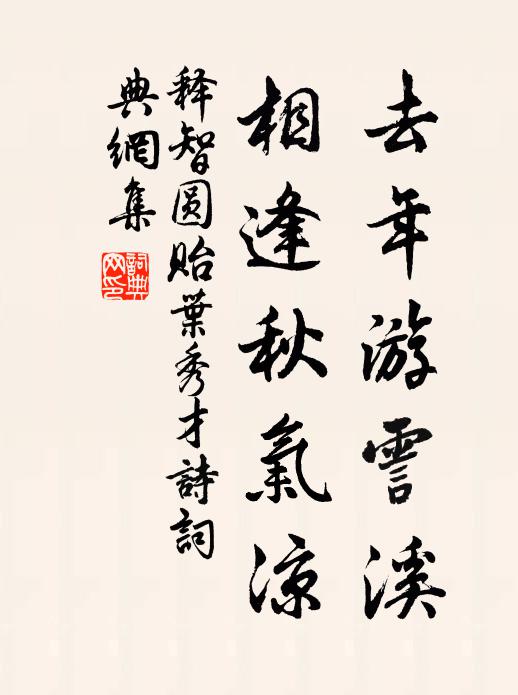 去年游霅溪
相逢秋氣涼
释智圆贻葉秀才詩詞
典網集
詞典網印